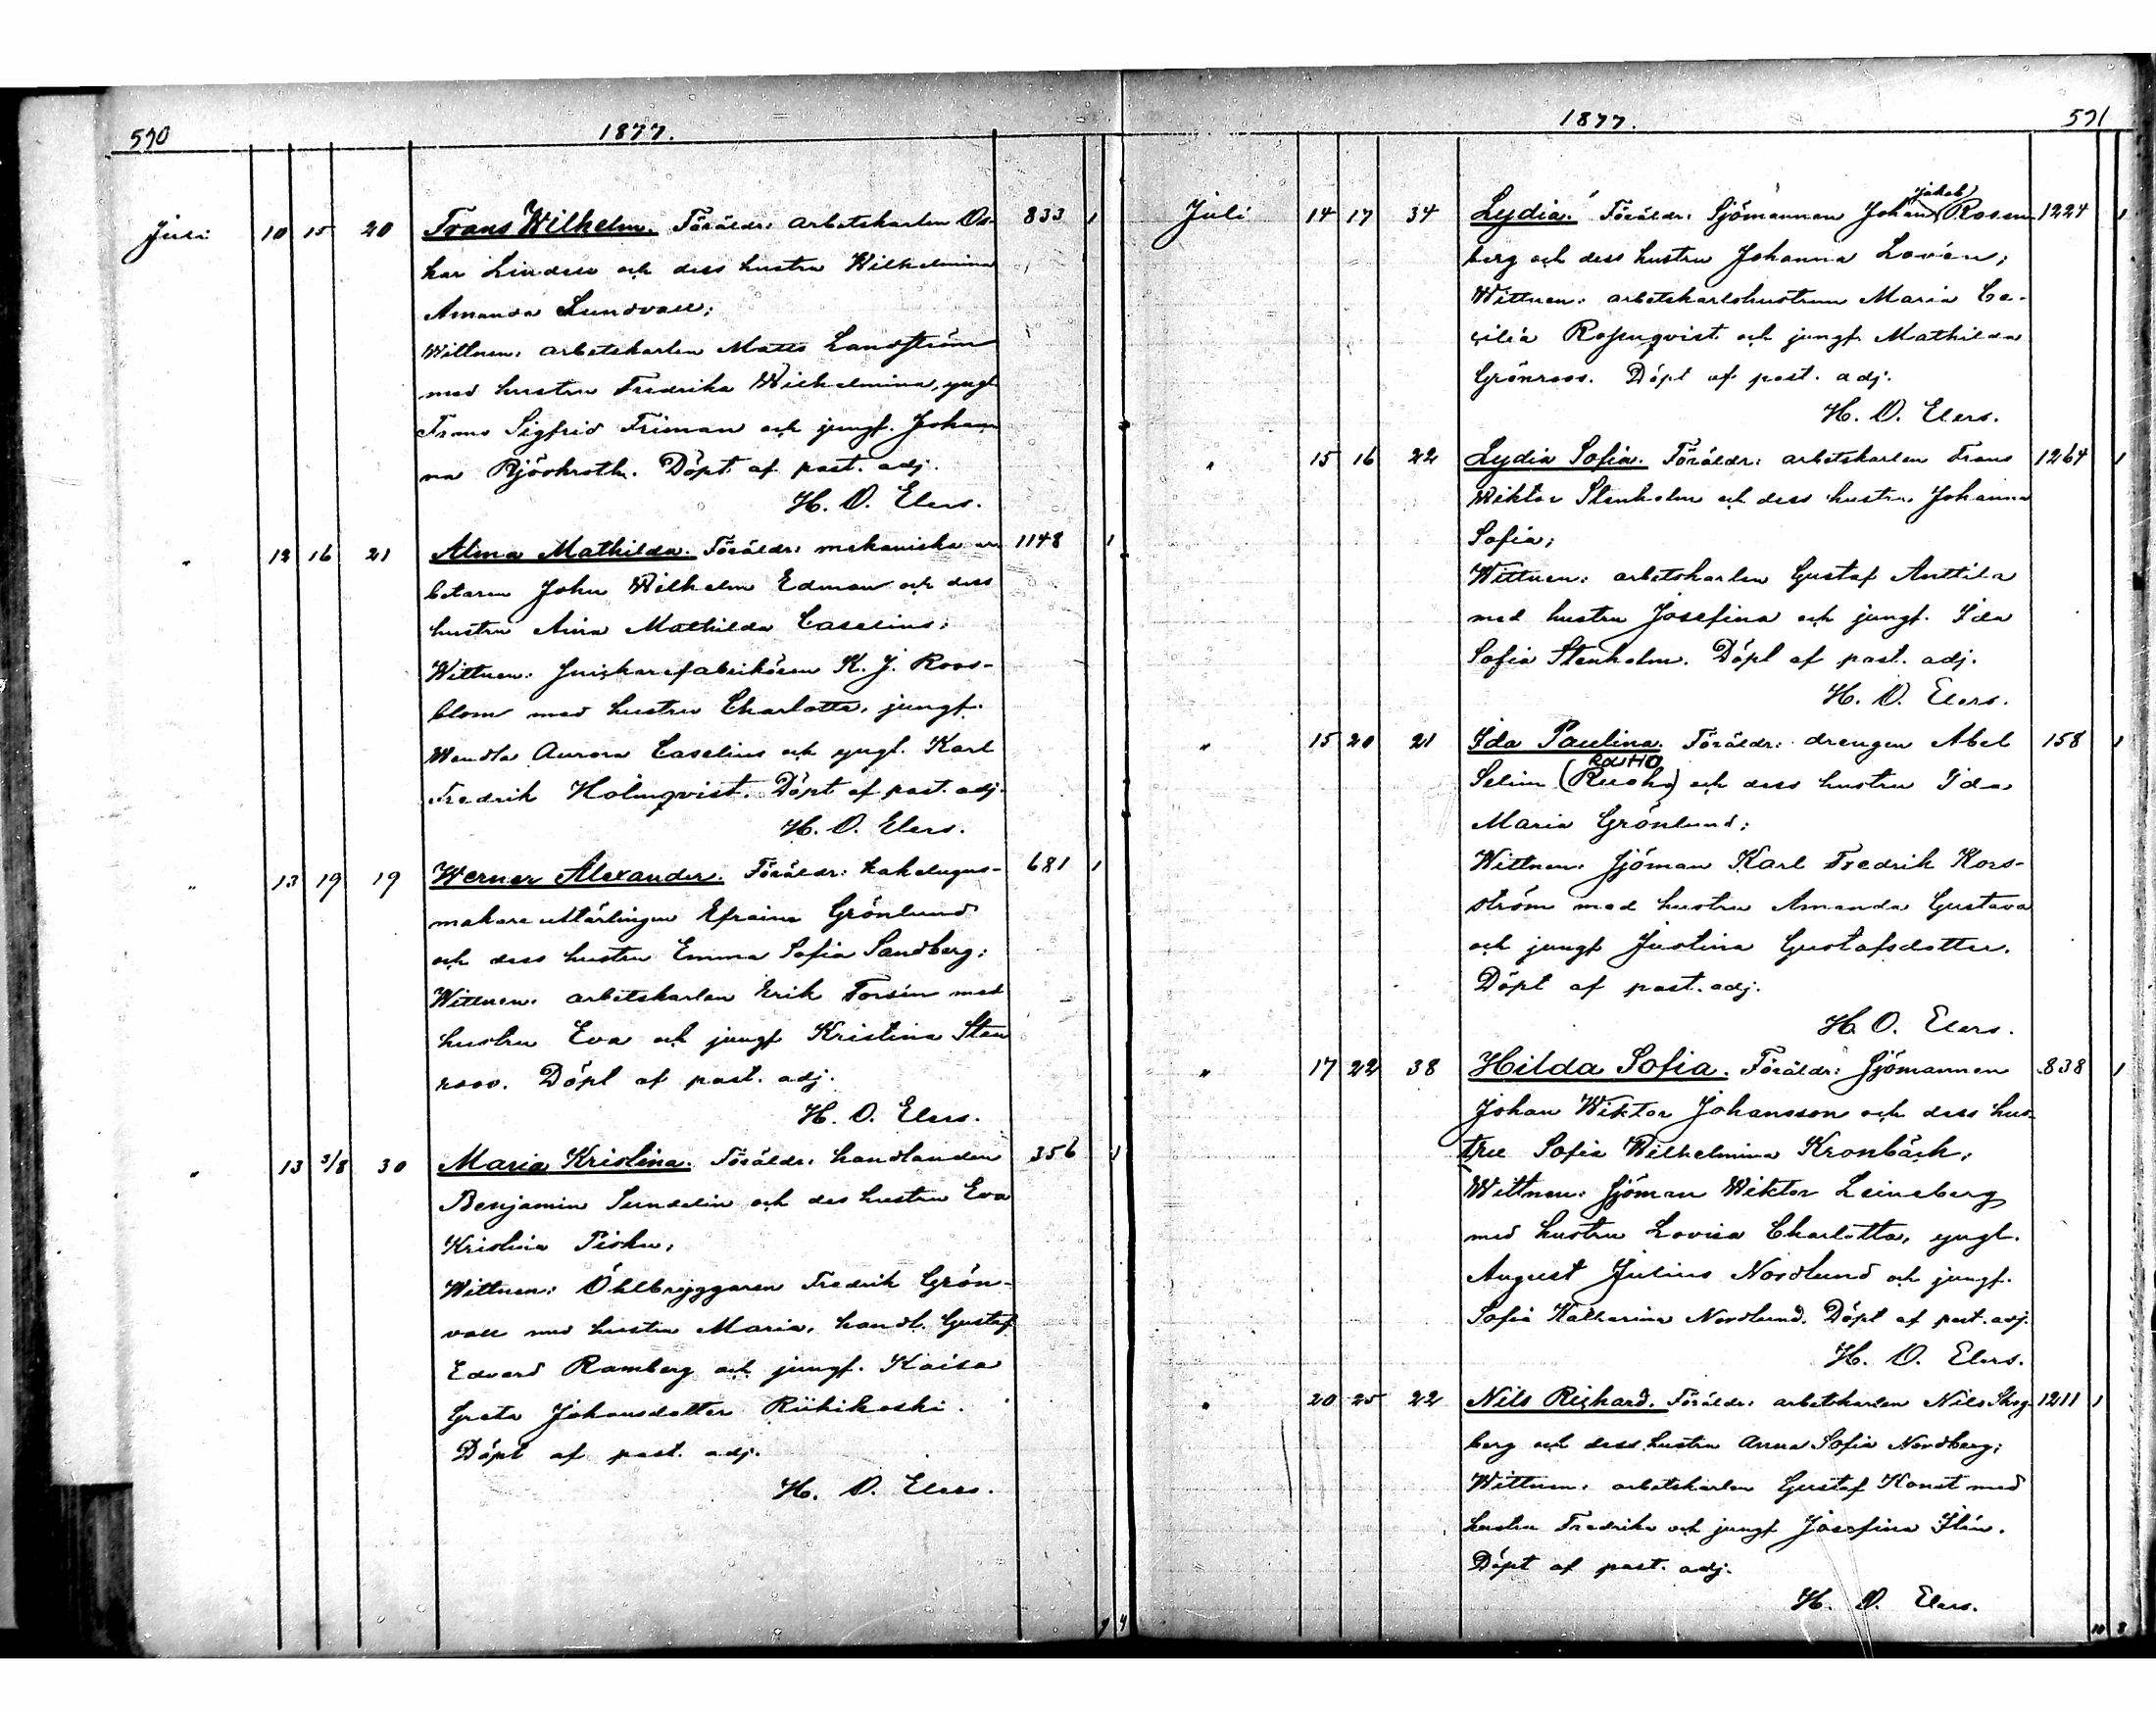 570
1877.
Juli 10 15 20 Frans Wilhelm. Föräldr: arbetskarlen Os- 833 1
kar Lindell och dess hustru Wilhelmina
Amanda Lundvall;
Wittnen: arbetskarlen Matts Landström
med hustru Fredrika Wilhelmina, yngl.
Frans Sigfrid Friman och jungf. Johan
na Björkroth. Döpt af past. adj.
H. O. Elers.
" 12 16 21 Alma Mathilda. Föräldr: mekaniske ar 1148 1
betaren John Wilhelm Edman och dess
hustru Aina Mathilda Caselius;
Wittnen: Snickarefabrikören K. J. Roos-
blom med hustru Charlotta, jungf.
Wendla Aurora Caselius och yngl. Karl
Fredrik Holmqvist. Döpt af past. adj.
H. O. Elers.
" 13 19 19 Werner Alexander. Föräldr: kakelugns- 681 1
makare utlärlingen Efraim Grönlund
och dess hustru Emma Sofia Sandberg;
Wittnen: arbetskarlen Erik Forsén med
hustru Eva och jungf Kristina Sten
roos. Döpt af past. adj.
H. O. Elers.
" 13 3/8 30 Maria Kristina. Föräldr: handlanden 356 1
Benjamin Sundelin och des hustru Eva
Kristina
Wittnen: Öhlbryggaren Fredrik Grön-
vall med hustru Maria, handl. Gustaf
Edvard Ramberg och jungf. Kaisa
Greta Johansdotter Riihikoski.
Döpt af past. adj.
H. O. Elers.
9 4
1877.
571
Juli 14 17 34 Lydia. Föräldr: Sjömannen Johan (Jakob) Rosen- 1224 1
berg och dess hustru Johanna Lovén;
Wittnen: arbetskarlshustrun Maria Ce-
cilia Rosenqvist och jungf. Mathilda
Grönroos. Döpt af past. adj.
H. O. Elers.
" 15 16 22 Lydia Sofia. Föräldr: arbetskarlen Frans 1264 1
Wiktor Stenholm och dess hustru Johanna
Sofia;
Wittnen: arbetskarlen Gustaf Anttila
med hustru Josefina och jungf. Ida
Sofia Stenholm. Döpt af past. adj.
H. O. Elers.
" 15 20 21 Ida Paulina. Föräldr: drengen Abel 158 1
ROUHO
Selim (Ruoho) och dess hustru Ida
Maria Grönlund;
Wittnen: Sjöman Karl Fredrik Kors-
ström med hustru Amanda Gustava
och jungf Justina Gustafsdotter.
Döpt af past. adj.
H. O. Elers.
" 17 22 38 Hilda Sofia. Föräldr: Sjömannen 838 1
Johan Wiktor Johansson och dess hus-
tru Sofia Wilhelmina Kronbäck;
Wittnen: Sjöman Wiktor Leineberg
med hustru Lovisa Charlotta, yngl.
August Julius Nordlund och jungf.
Sofia Katharina Nordlund. Döpt af past. adj.
H. O. Elers.
" 20 25 22 Nils Richard. Föräldr: arbetskarlen Nils Skog- 1211 1
berg och dess hustru Anna Sofia Nordberg;
Wittnen: arbetskarlen Gustaf Konst med
hustru Fredrika och jungf Josefina
Döpt af past. adj.
H. O. Elers.
10 8